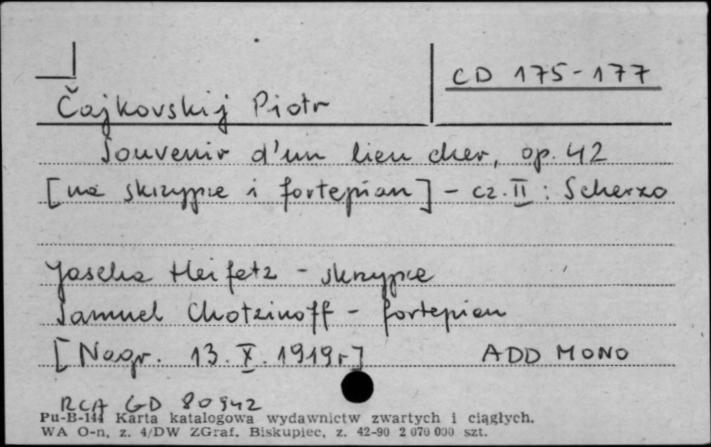 CD 175-177
Čajkovskij Piotr
Souvenir d'un lieu cher, op. 42
[na skrzypce i fortepian] - cz. II : Scherzo
Jascha Heifetz - skrzypce
Samuel Chotzinoff - fortepian
[Nagr. 13. X. 1919 r] ADD MONO
RCA GD 80942
Pu-B-144 Karta katalogowa wydawnictw zwartych i ciągłych.
WA O-n, z. 4/DW ZGraf. Biskupiec, z. 42-90 2 070 000 szt.